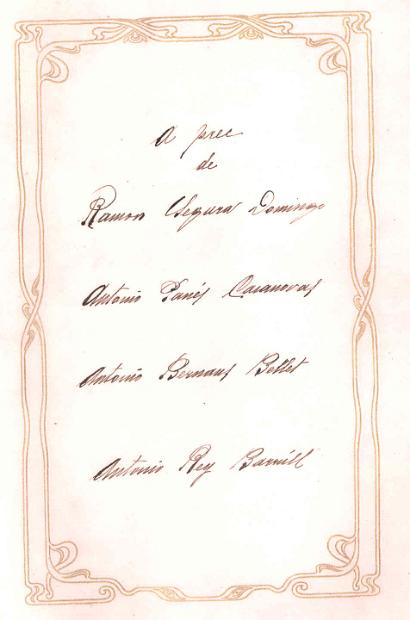 A prec
de
Ramon Segura Domingo
Antonio Panés Casanovas
Antonio Bernaus Bellet
Antonio Rey